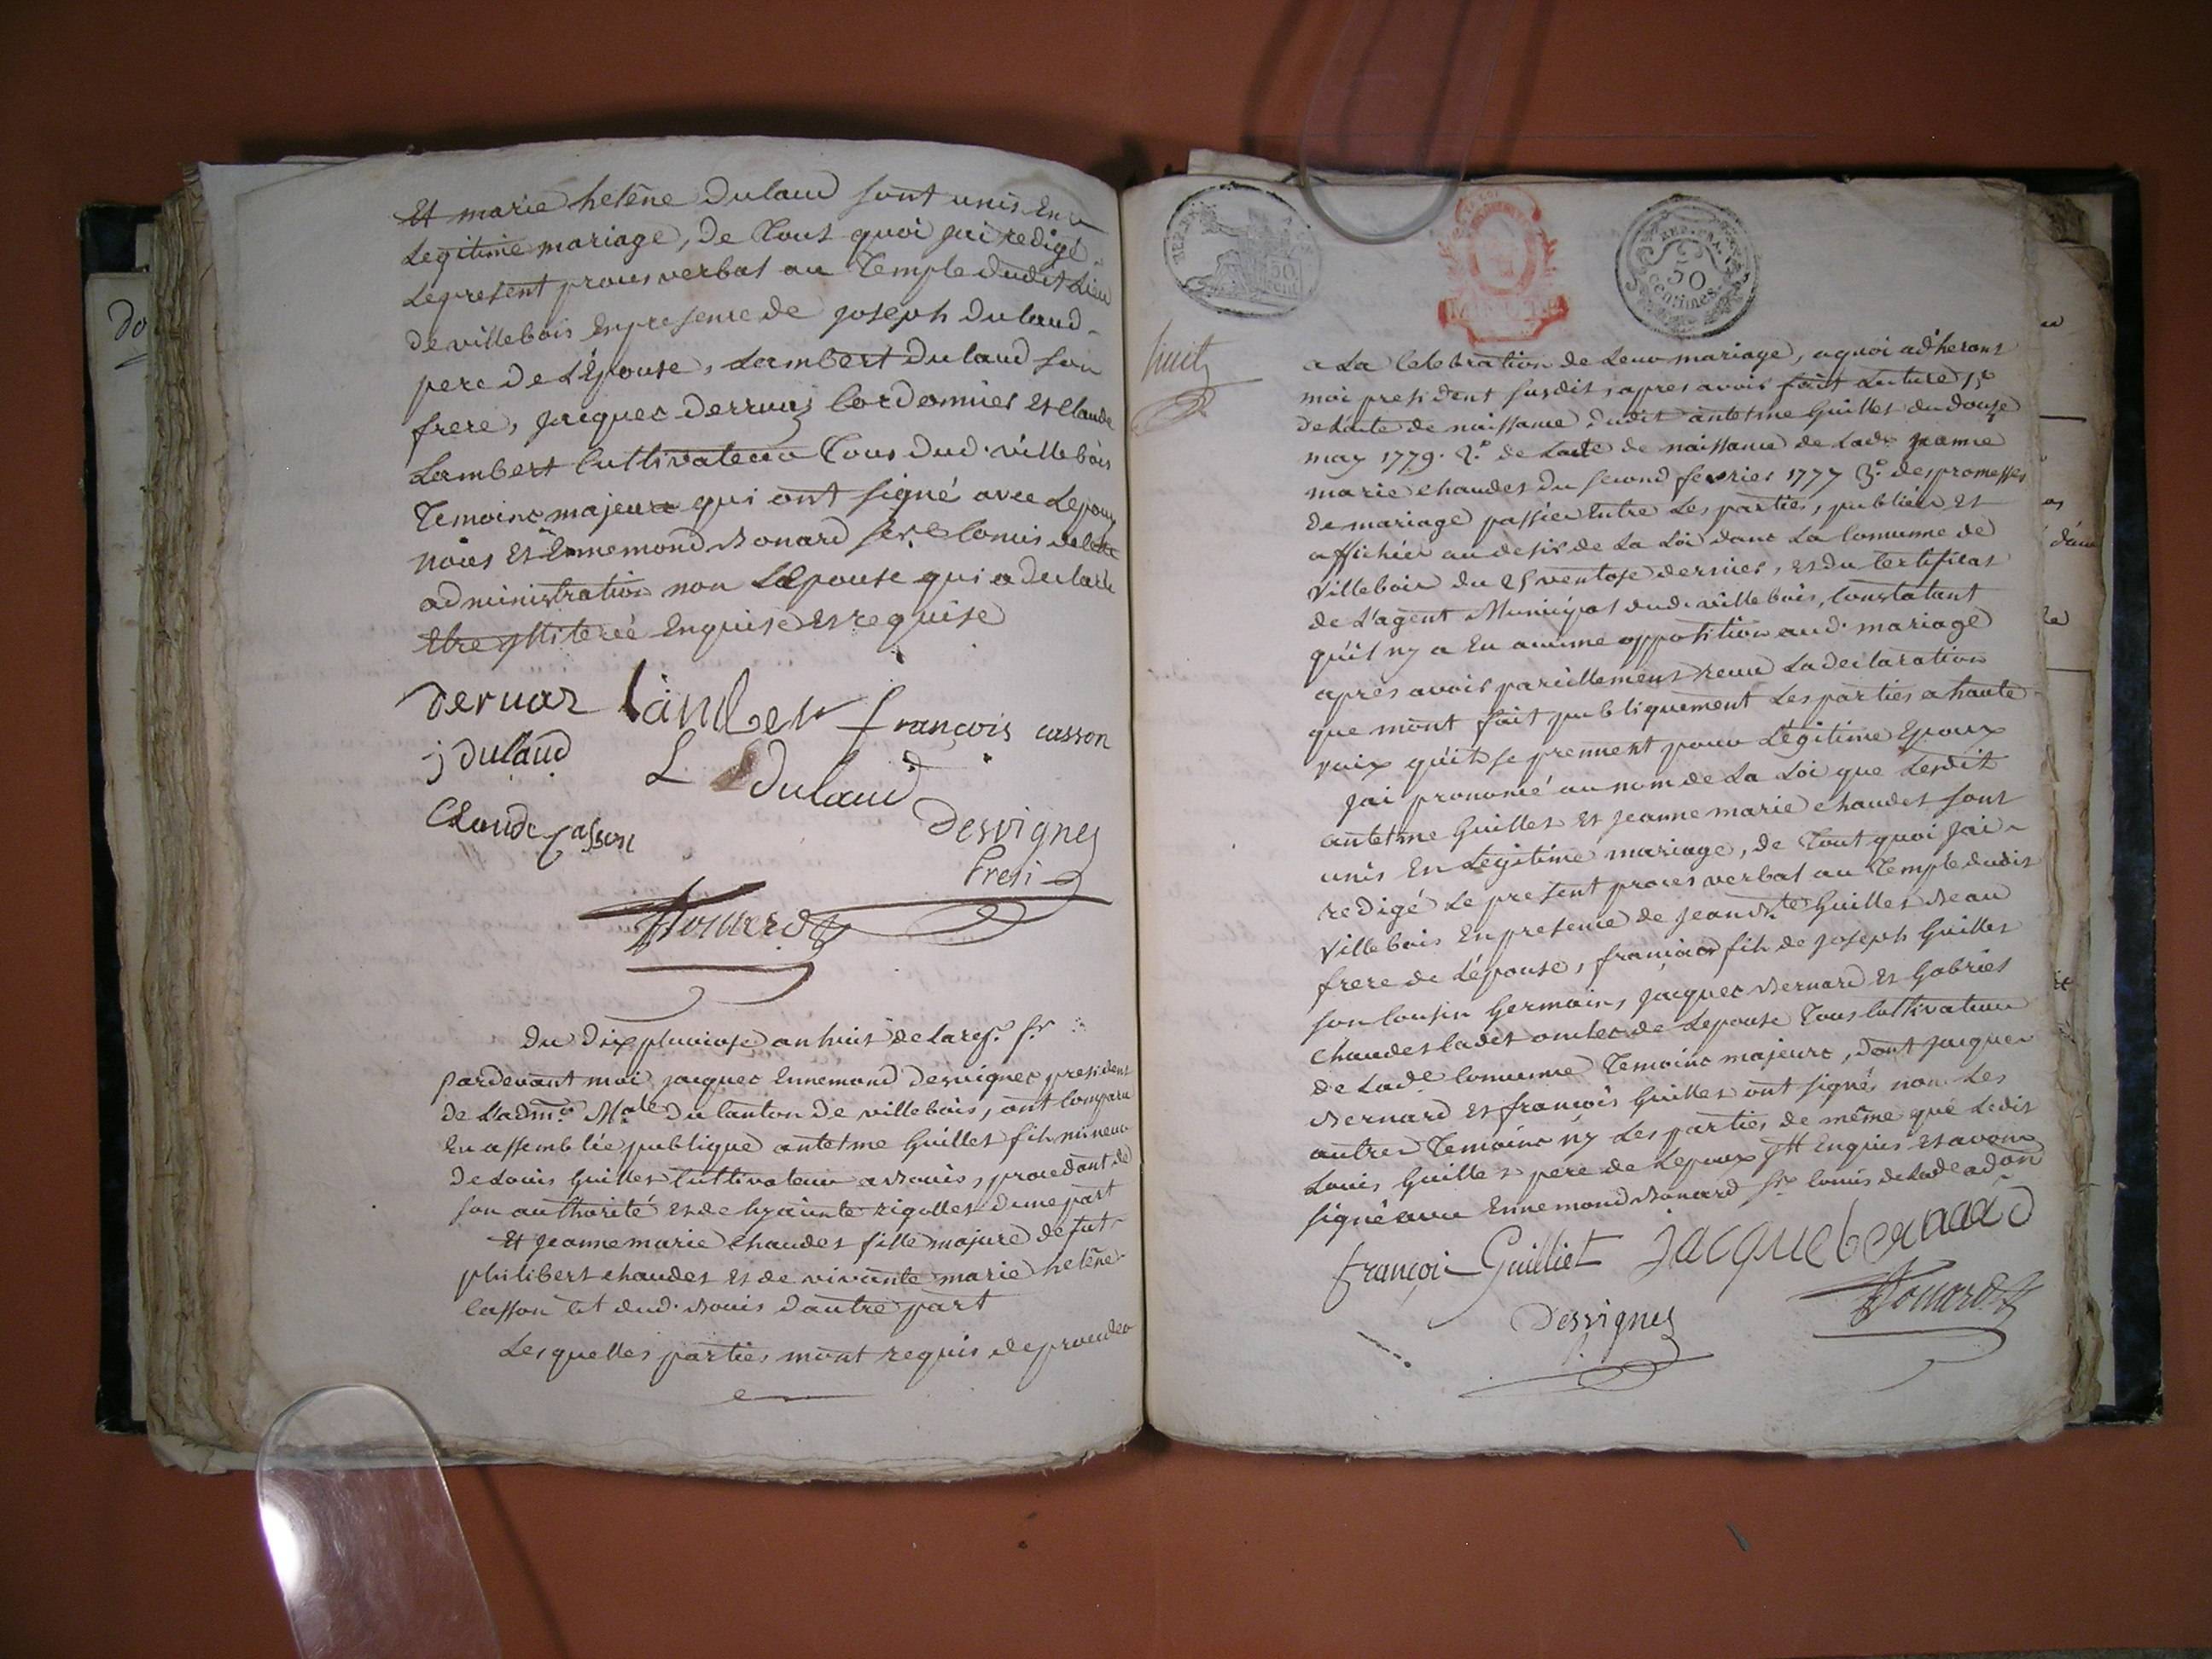 Et marie helene Dulaud sont unis En
Legitime mariage, De Tout quoi jai redigé
Le present proces verbal au Temple dudit Lieu
de villebois En presence de joseph Dulaud
pere De L'Epouse, Lambert Dulaud son
frere, jacques Derruaz Cordonnier Et Claude
Lambert Cultivateur Tous dud. villebois
Temoins majeurs qui ont signé avec Lepoux
nous Et Ennemond Bonard secre Commis de Cette
administration non LEpouse qui a declaré
Etre illiterée Enquise Et requise
Deruaz Lamber françois casson
j Dulaud L Dulaud
Claude Casson Desvignes
Presi
Bonard
Du Dix pluviose an huit de la rep. fr.
Pardevant moi jacques Ennemond Desvignes president
de L'admon Male Du Canton De villebois, ont Comparu
En assemblée publique antelme Guillet fils mineur
De Louis Guillet Cultivateur a Bouis, procedant de
son authorité et de hyacinte rigollet D'une part
Et Jeanne marie Chaudet fille majure de fut
philibert chaudet et de vivante marie helene
Casson dud. Bouis D'autre part
Lesquelles parties m'ont requis de proceder
REP. FRA.
50
Centimes
huit
a La Celebration de Leur mariage, a quoi adherant
moi president susdit, apres avoir fait Lecture 1°
de L'acte de naissance dudit antelme Guillet du douze
may 1779. 2.° de Lacte de naissance de Lade jeanne
marie chaudet du second fevrier 1777 3.° des promesses
de mariage passées Entre Les parties, publiées Et
affichées au desir de La Loi dans La Commune de
Villebois du 25 ventose dernier, et du Certificat
de L'agent Municipal dud. villebois, Constatant
qu'il ny a Eu aucune opposition aud. mariage
apres avoir pareillement recu La declaration
que m'ont fait publiquement Les parties a haute
voix qu'ils se prennent pour Legitime Epoux
Jai prononcé au nom de La Loi que Lesdit
antelme Guillet et Jeanne marie chaudet sont
unis En Legitime mariage, de Tout quoi Jai
redigé Le present proces verbal au Temple dudit
Villebois En presence de Jean Bte Guillet Beau
frere de L'épouse, francois fils de joseph Guillet
son Cousin Germain, jacques Bernard et Gabriel
Chaudet Cadet oncles de Lepouse Tous Cultivateurs
de Lade Commune Temoins majeurs, dont jacques
Bernard et francois Guillet ont signés, non Les
autres Temoins ny Les parties de même que Ledit
Louis Guillet pere de Lepoux Enquis et avons
signé avec Ennemond Bonard Commis de Lade adon
françois Guilliet Jacque bernard
Desvignes Bonard